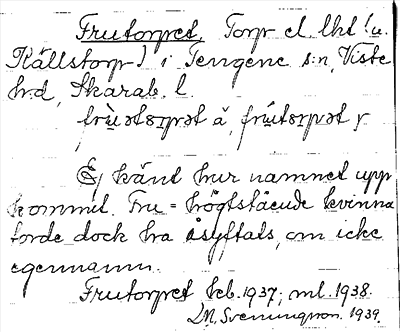 Frutorpet, Torp el. lht (u.
Källstorp) i Tengene s:n, Viste
hrd, Skarab. l.
frù̀ətɷrpət ă, frútɷrpət y
Ej känt hur namnet upp
kommit. Fru = högtstående kvinna
torde dock ha åsyftats, om icke
egennamn.
Frutorpet keb. 1937; ml. 1938.
D.M. Svenningson. 1939.